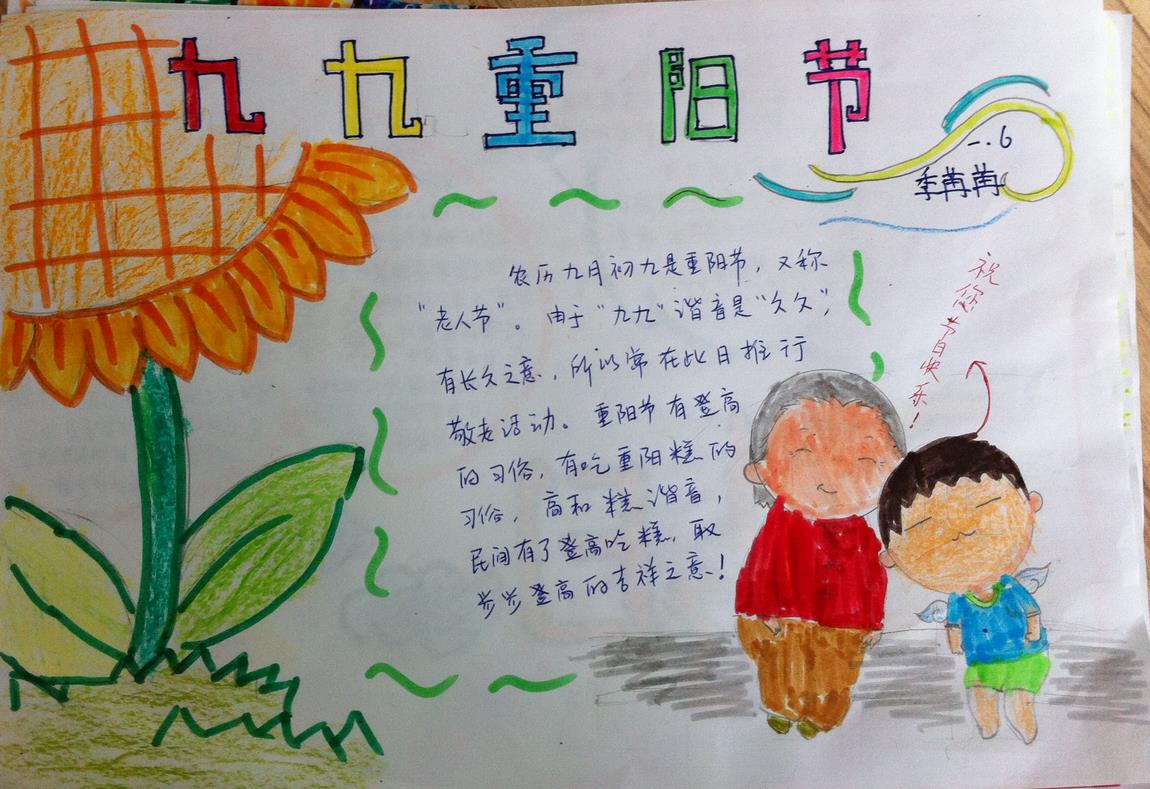 九九重阳节
一.6
季苒苒
农历九月初九是重阳节，又称
“老人节”。由于“九九”谐音是“久久”，
有长久之意，所以常在此日推行
敬老活动。重阳节有登高
的习俗，有吃重阳糕的
习俗，高和糕谐音，
民间有了登高吃糕，取
步步登高的吉祥之意！
祝您节日快乐！